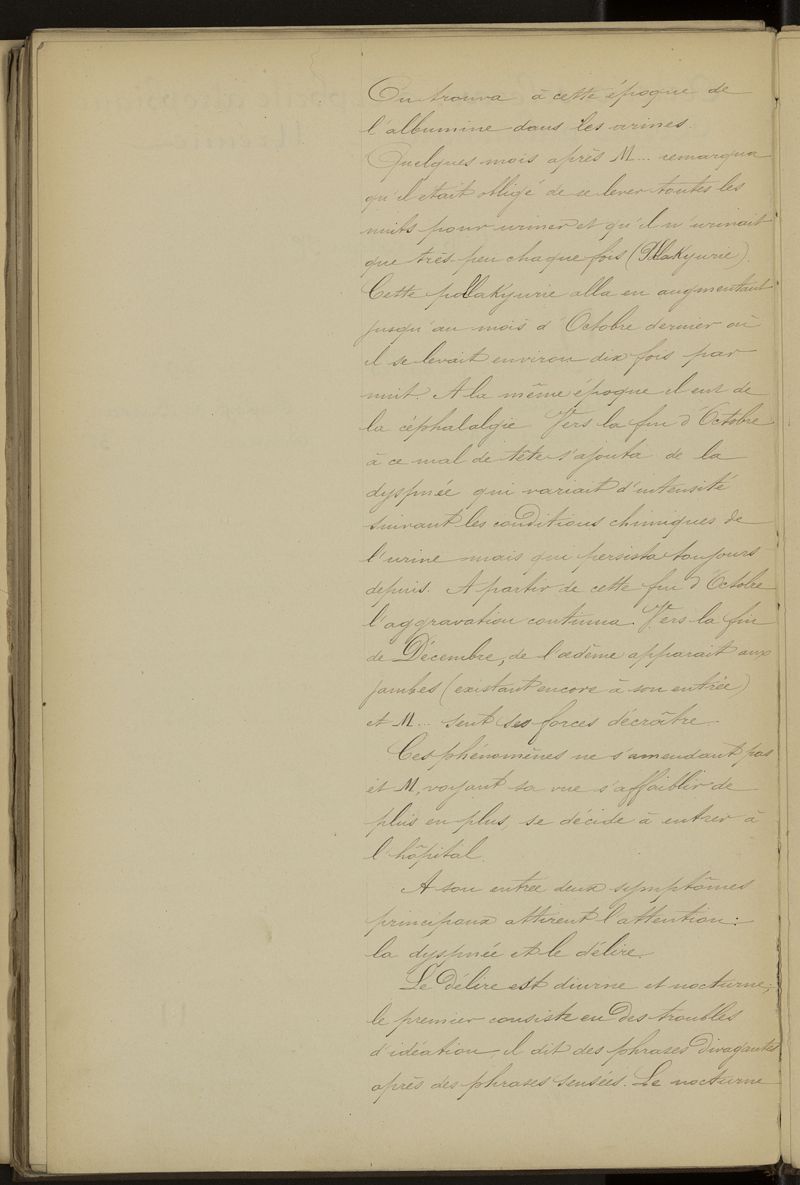 On trouva à cette époque de
l'albumine dans les urines.
Quelques mois après M... remarqua
qu'il était obligé de se lever toutes les
nuits pour uriner et qu'il n'urinait
que très peu chaque fois (Pollakyurie).
Cette pollakyurie alla en augmentant
jusqu'au mois d'Octobre dernier où
il se levait environ dix fois par
nuit. A la même époque il eut de
la céphalalgie. Vers la fin d'Octobre
à ce mal de tête s'ajouta de la
dyspnée qui variait d'intensité
suivant les conditions chimiques de
l'urine mais qui persista toujours
depuis. A partir de cette fin d'Octobre
l'aggravation continua. Vers la fin
de Décembre, de l'œdème apparait aux
jambes (existant encore à son entrée)
et M... sent ses forces décroître.
Ces phénomènes ne s'amendant pas
et M, voyant sa vue s'affaiblir de
plus en plus, se décide à entrer à
l'hôpital.
A son entrée deux symptômes
principaux attirent l'attention:
la dyspnée et le délire.
Le Délire est diurne et nocturne;
le premier consiste en des troubles
d'idéation, il dit des phrases divagantes
après des phrases sensées. Le nocturne